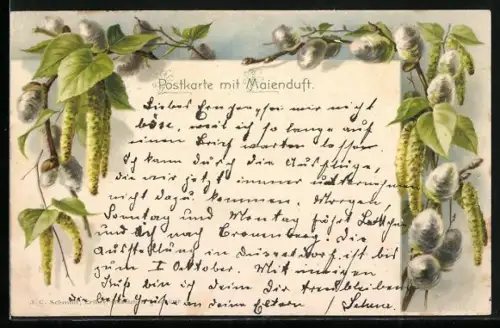 Postkarte mit Maienduft.
Liebes sei mir nicht
böse, weil ich so lange auf
einen Brief warten lasse.
Ich kann durch die Ausflüge,
die wir jetzt immer unternehmen
nicht dazu kommen. Morgen,
Sonntag und Montag fährt
und ich nach Cronenberg. Die
Ausstellung in Düsseldorf ist bis
zum 1 Oktober. Mit innigem
Kuß bin ich deine dir treubleibende
die beste Grüße an deine Eltern